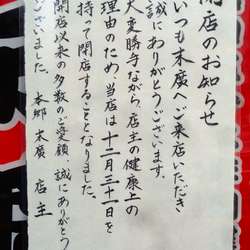 閉店のお知らせ
いつも末廣へご来店いただき
誠にありがとうございます。
大変勝手ながら、店主の健康上の
理由のため、当店は十二月三十一日を
持って閉店することとなりました。
開店以来の多数のご愛顧 誠にありがとう
ございました。 本郷 末廣 店主